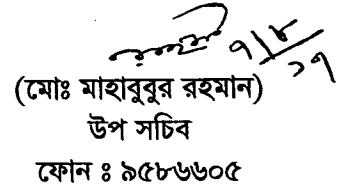 ৭/৮/১৭
(মোঃ মাহাবুবুর রহমান)
উপ সচিব
ফোন ঃ ৯৫৮৬৬০৫